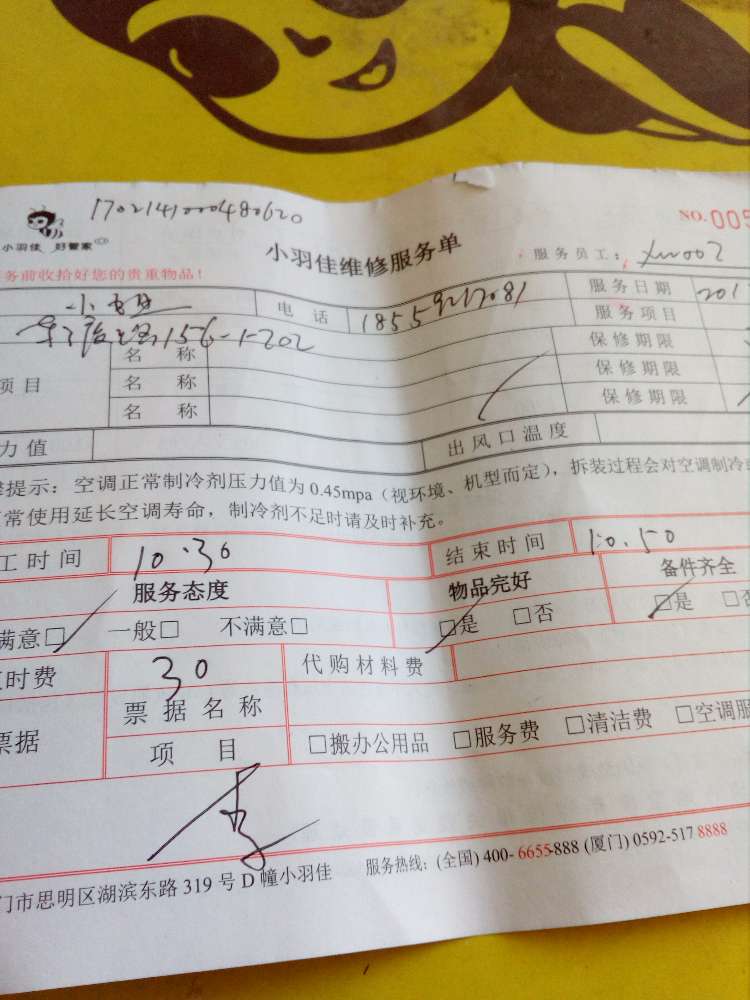 1702141000480620
NO.005
小羽佳 好管家
小羽佳维修服务单
务前收拾好您的贵重物品！
服务员工：
电 话
服务日期 201
服务项目
项目
名 称
保修期限
名 称
保修期限
名 称
保修期限
力值
出风口温度
提示：空调正常制冷剂压力值为0.45mpa（视环境、机型而定），拆装过程会对空调制冷
常使用延长空调寿命，制冷剂不足时请及时补充。
工时间 10.30 结束时间 10.50
服务态度 物品完好 备件齐全
满意□ 一般□ 不满意□ □是 □否 □是 □否
时费 30 代购材料费
票据
票据名称
项 目 □搬办公用品 □服务费 □清洁费 □空调服
门市思明区湖滨东路319号D幢小羽佳 服务热线：(全国) 400-6655-888 (厦门) 0592-517 8888